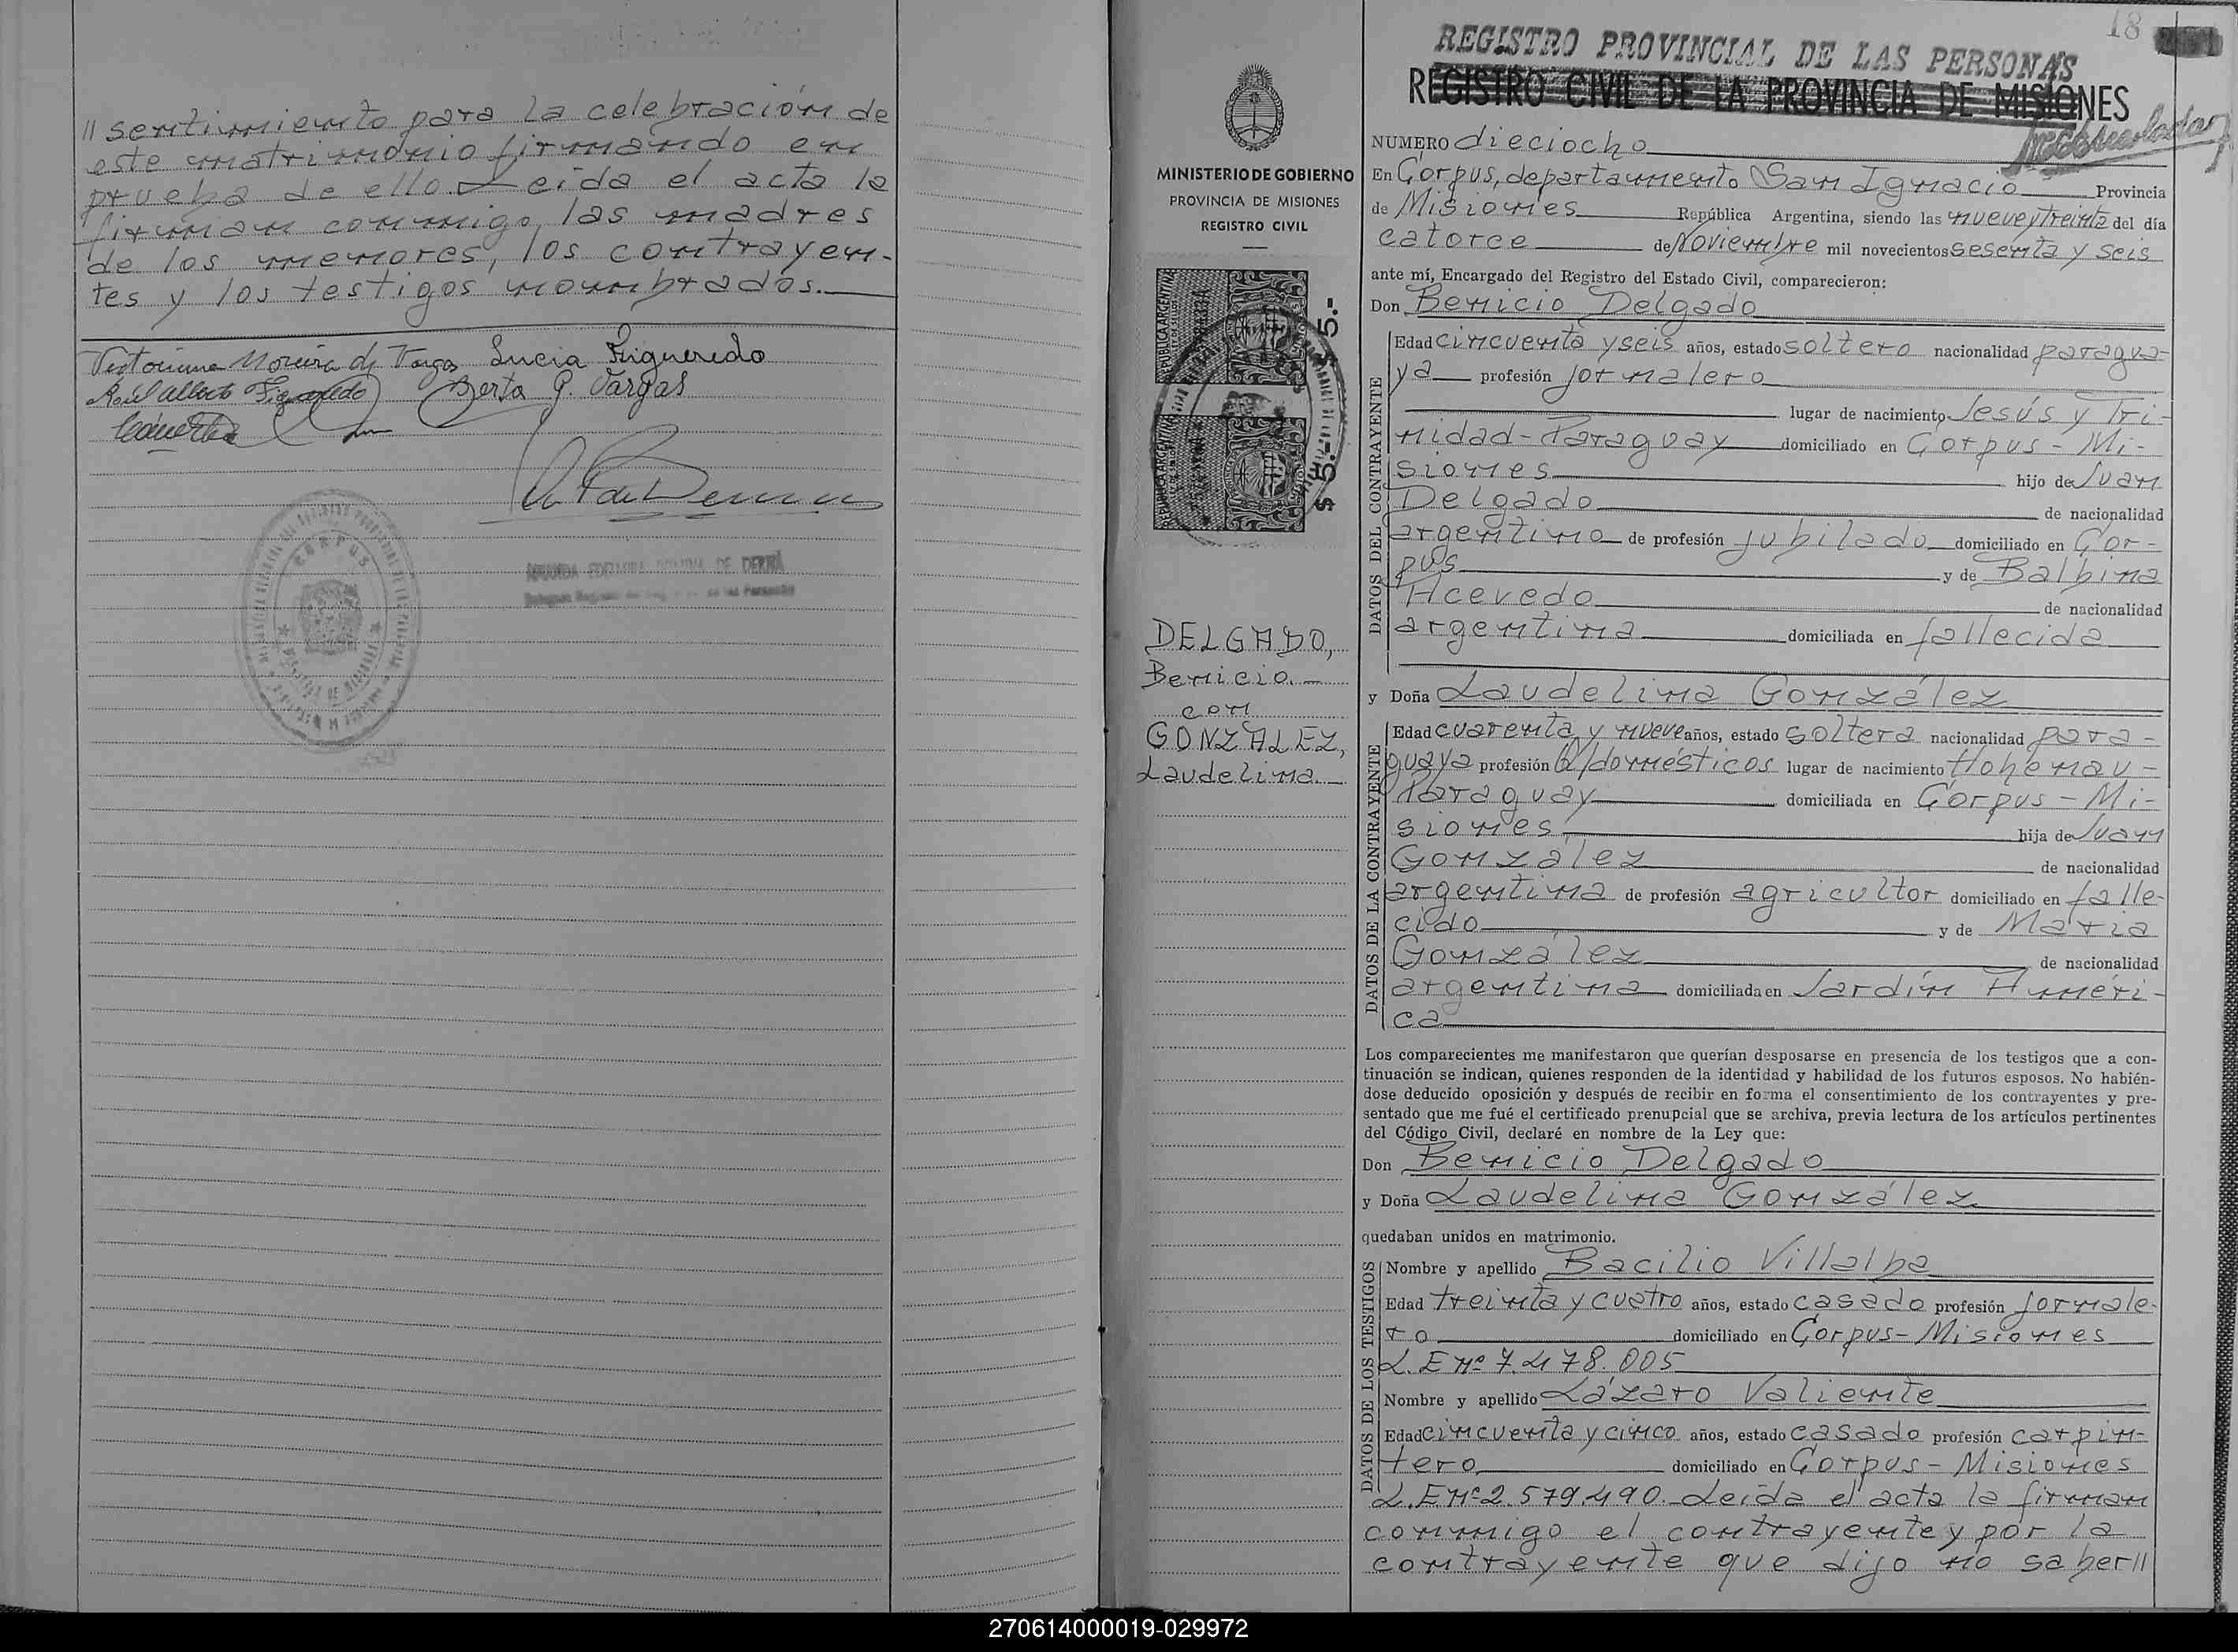 // sentimiento para la celebración de
este matrimonio firmando en
prueba de ello. Leida el acta la
firman conmigo, las madres
de los menores, los contrayen-
tes y los testigos nombrados.
Victoriana Moreira de Vargas Lucia Figueredo
Raúl Alberto Figueredo Berta G. Vargas
CORPUS
18
REGISTRO PROVINCIAL DE LAS PERSONAS
REGISTRO CIVIL DE LA PROVINCIA DE MISIONES
MINISTERIO DE GOBIERNO
PROVINCIA DE MISIONES
REGISTRO CIVIL
REPUBLICA ARGENTINA
$ 5.-
REPUBLICA ARGENTINA
$ 5.-
DELGADO,
Benicio.-
con
GONZALEZ,
Laudelina.-
NUMERO dieciocho
En Corpus, departamento San Ignacio Provincia
de Misiones República Argentina, siendo las nueve y treinta del día
catorce de Noviembre mil novecientos sesenta y seis
ante mí, Encargado del Registro del Estado Civil, comparecieron:
Don Benicio Delgado
DATOS DEL CONTRAYENTE
Edad cincuenta y seis años, estado soltero nacionalidad paragua-
ya profesión jornalero
lugar de nacimiento Jesús y Tri-
nidad - Paraguay domiciliado en Corpus - Mi-
siones hijo de Juan
Delgado de nacionalidad
argentino de profesión jubilado domiciliado en Cor-
pus y de Balbina
Acevedo de nacionalidad
argentina domiciliada en fallecida
y Doña Laudelina González
DATOS DE LA CONTRAYENTE
Edad cuarenta y nueve años, estado soltera nacionalidad para-
guaya profesión Q/domésticos lugar de nacimiento Hohenau-
Paraguay domiciliada en Corpus - Mi-
siones hija de Juan
González de nacionalidad
argentina de profesión agricultor domiciliado en falle-
cido y de María
González de nacionalidad
argentina domiciliada en Jardín Améri-
ca
Los comparecientes me manifestaron que querían desposarse en presencia de los testigos que a con-
tinuación se indican, quienes responden de la identidad y habilidad de los futuros esposos. No habién-
dose deducido oposición y después de recibir en forma el consentimiento de los contrayentes y pre-
sentado que me fué el certificado prenupcial que se archiva, previa lectura de los artículos pertinentes
del Código Civil, declaré en nombre de la Ley que:
Don Benicio Delgado
y Doña Laudelina González
quedaban unidos en matrimonio.
DATOS DE LOS TESTIGOS
Nombre y apellido Bacilio Villalba
Edad treinta y cuatro años, estado casado profesión jornale-
ro domiciliado en Corpus - Misiones
L.E Nº 7.478.005
Nombre y apellido Lázaro Valiente
Edad cincuenta y cinco años, estado casado profesión carpin-
tero domiciliado en Corpus - Misiones
L.E Nº 2.579.490. Leida el acta la firman
conmigo el contrayente y por la
contrayente que dijo no saber//
270614000019-029972